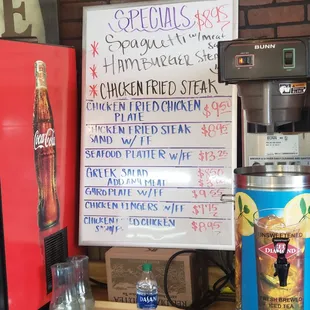 E
SPECIALS $8.95
* Spaghetti w/meat
* Hamburger Steak
* CHICKEN FRIED STEAK
CHICKEN FRIED CHICKEN
PLATE
CHICKEN FRIED STEAK
SAND W/FF $8.95
SEAFOOD PLATTER W/FF
GREEK SALAD
ADD ANY MEAT
GYRO PLATE W/FF
CHICKEN FINGERS W/FF
CHICKEN FRIED CHICKEN
$8.95
Coca-Cola
BUNN
UNSWEETENED
DIAMOND
FRESH BREWED
ICED TEA
DASANI